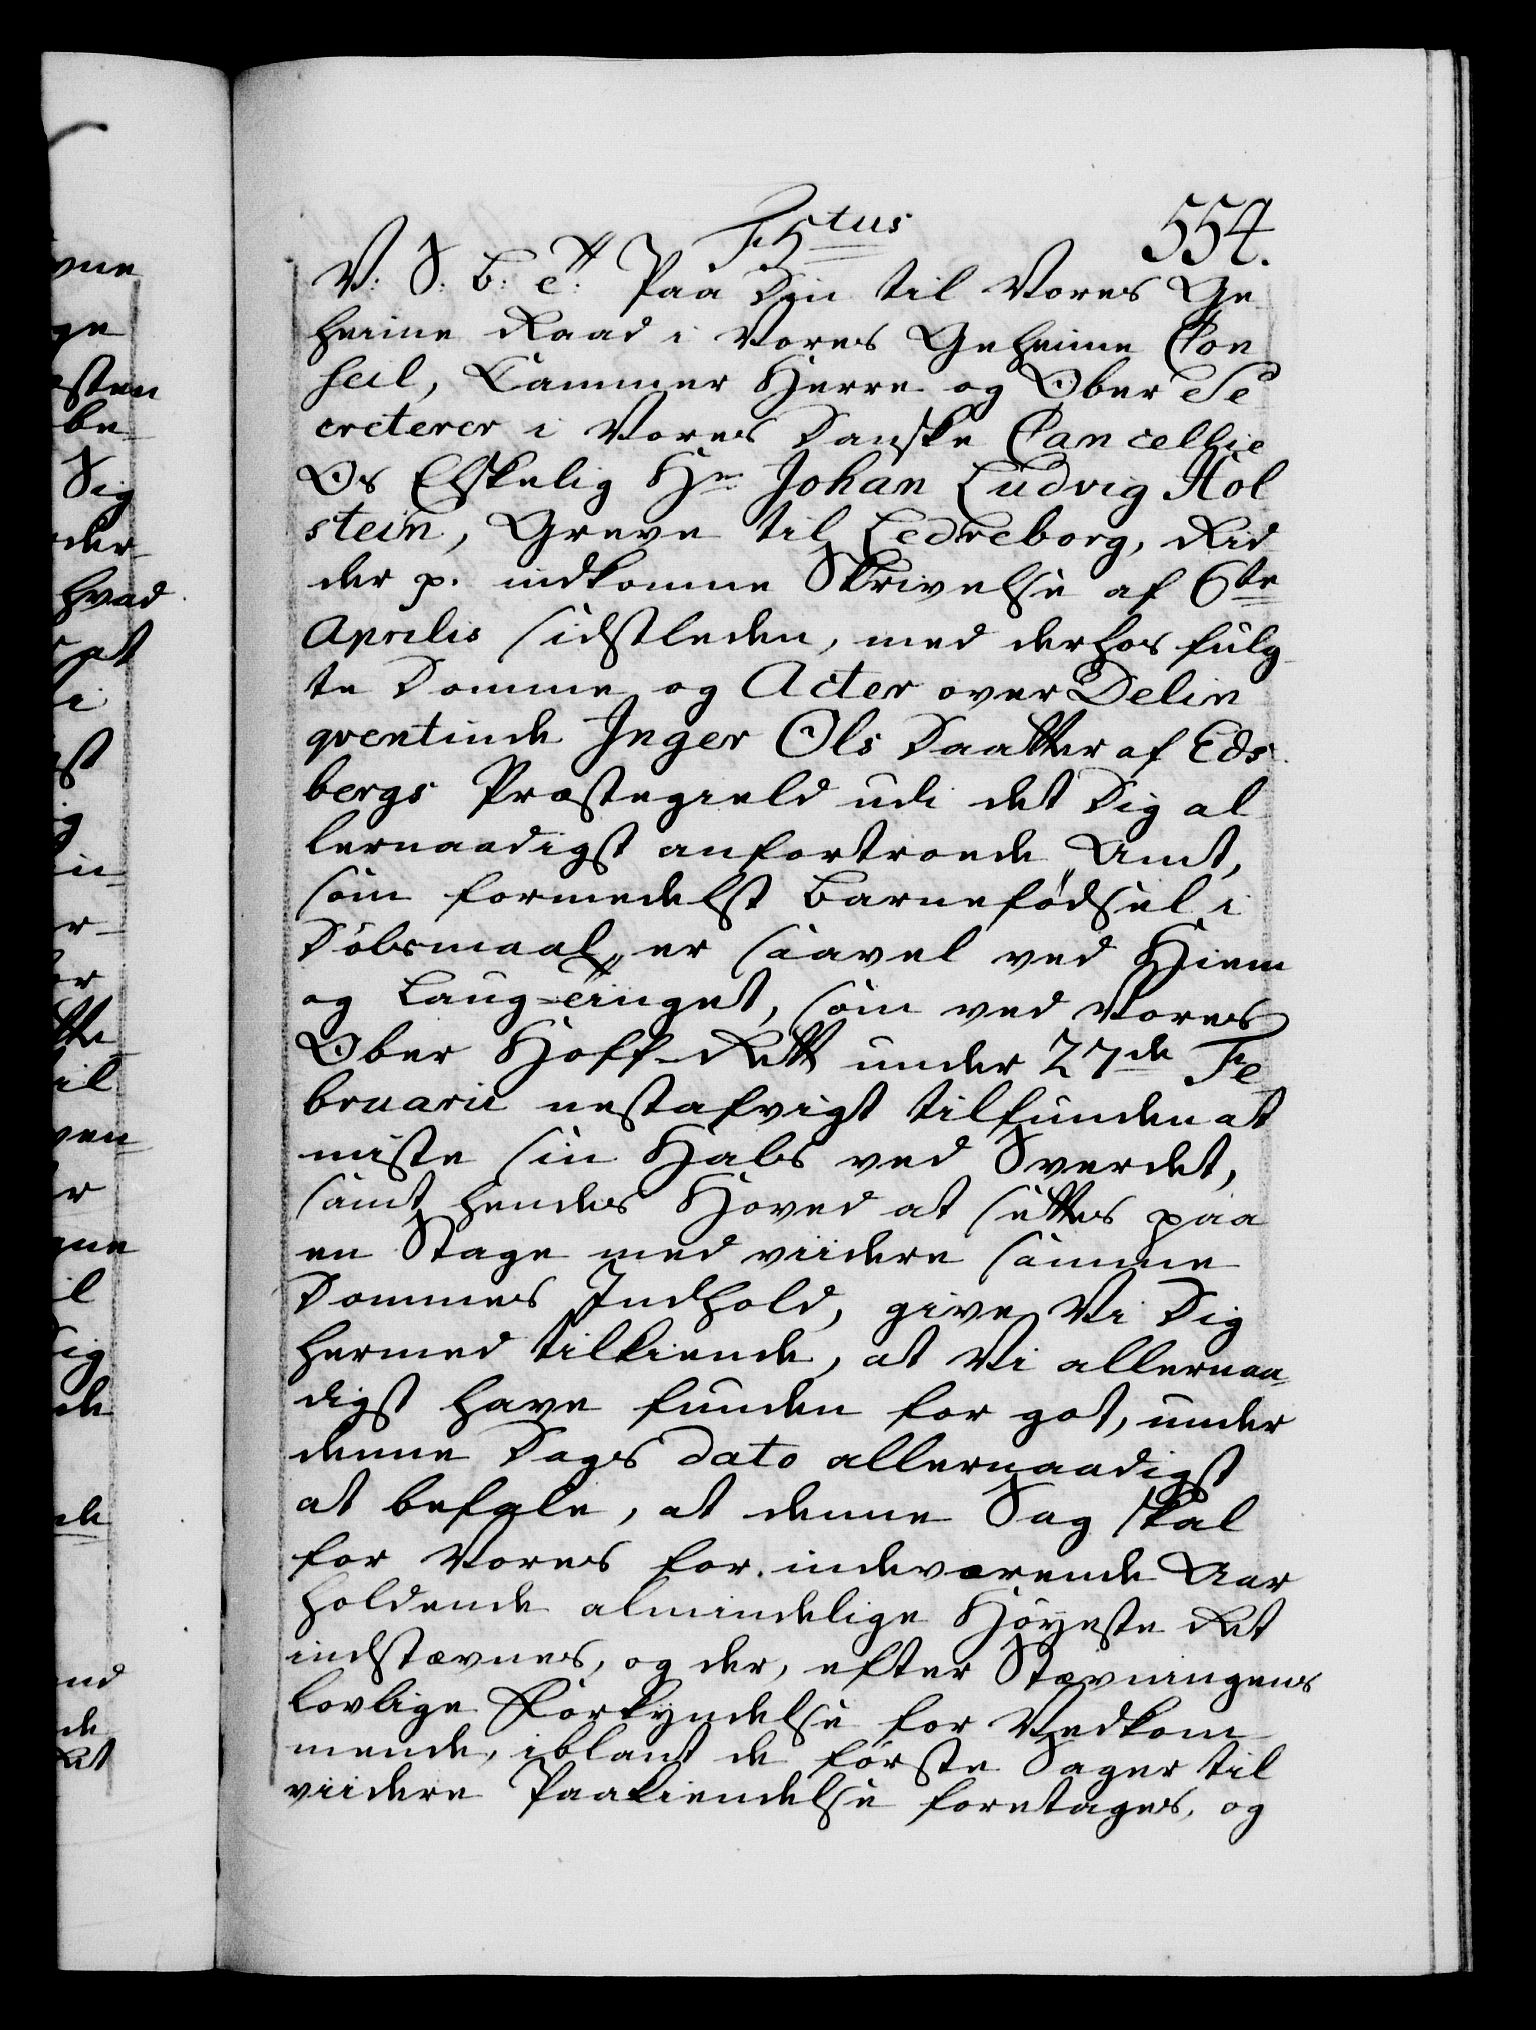 F 5tus
554.
V: S: B: etc: Paa Din til Vores Ge
heime Raad i Vores Geheime Con
seil, Cammer Herre og Ober Se
creterer i Vores Danske Cancellie
Os Elskelig Hr Johan Ludvig Hol
stein, Greve til Ledreborg, Rid
der p. indkomne Skrivelse af 6te
Aprilis sidstleden, med derhos fulg
te Domme og Acter over Delin
qventinde Inger Ols Daatter af Eds
bergs Præstegield udi det Dig al
lernaadigst anfortroede Amt,
som formedelst Barnefødsel i
Dølsmaal, er saavel ved Hiem
og Laug-tinget, som ved Vores
Ober Hoff-Rett under 27de Fe
bruarii nestafvigt tilfunden at
miste sin Hals ved Sverdet,
samt hendes Hoved at settes paa
en Stage med viidere samme
Dommes Indhold, give Vi Dig
hermed tilkiende, at Vi allernaa-
digst have funden for got, under
denne Dags dato allernaadigst
at befale, at denne Sag skal
for Vores for indeværende Aar
holdende almindelige Høyeste Ret
indstævnes, og der, efter Stævningens
lovlige Forkyndelse for Vedkom
mende, iblant de første Sager til
viidere Paakiendelse foretages, og